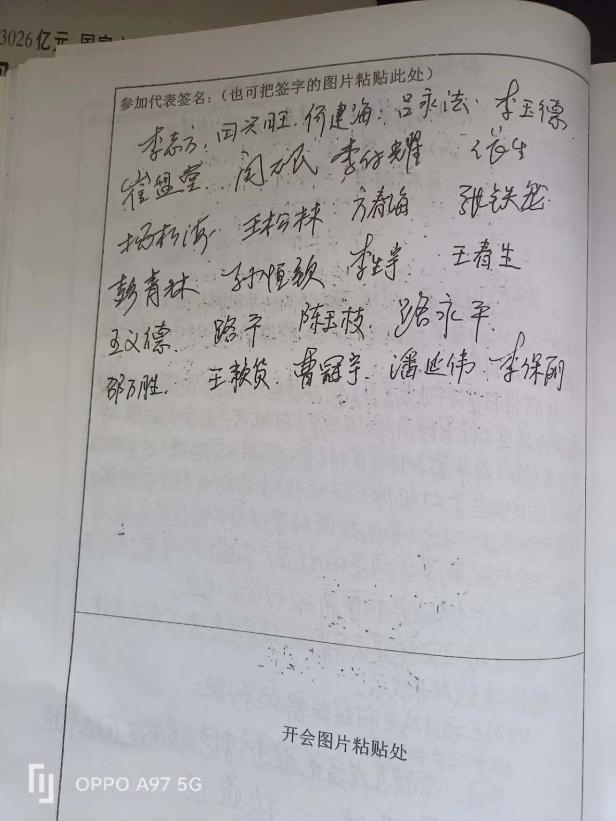 3026亿元
参加代表签名：（也可把签字的图片粘贴此处）
李志方 田兴旺 何建海 吕永法 李玉德
崔盟堂 闫万民
杨松海 王松林 方春海
彭青林 孙恒歌 李生学 王春生
王义德 路平 陈玉枝 路永平
邵万胜 曹冠宇 潘延伟 李保丽
开会图片粘贴处
OPPO A97 5G